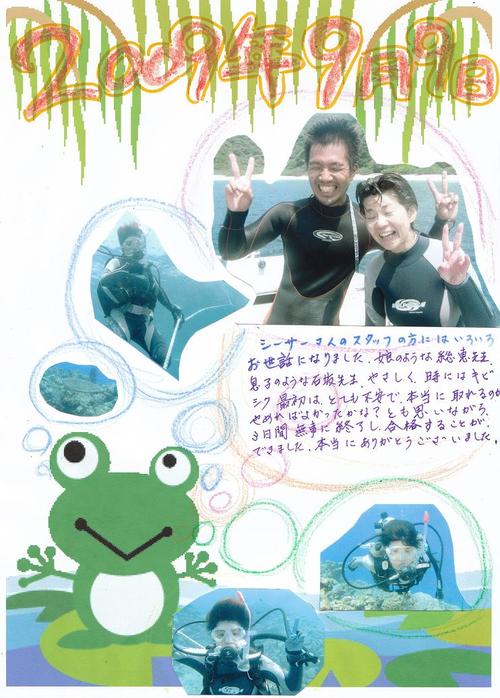 2009年9月9日
シーサーさんのスタッフの方にはいろいろ
お世話になりました。娘のような 総恵先生
息子のような石坂先生、やさしく、時にはキビ
シク 最初は、とても不安で、本当に取れるのか
やめればよかったかな？とも思いながら、
3日間 無事に終了し、合格することが、
できました。本当にありがとうございました。